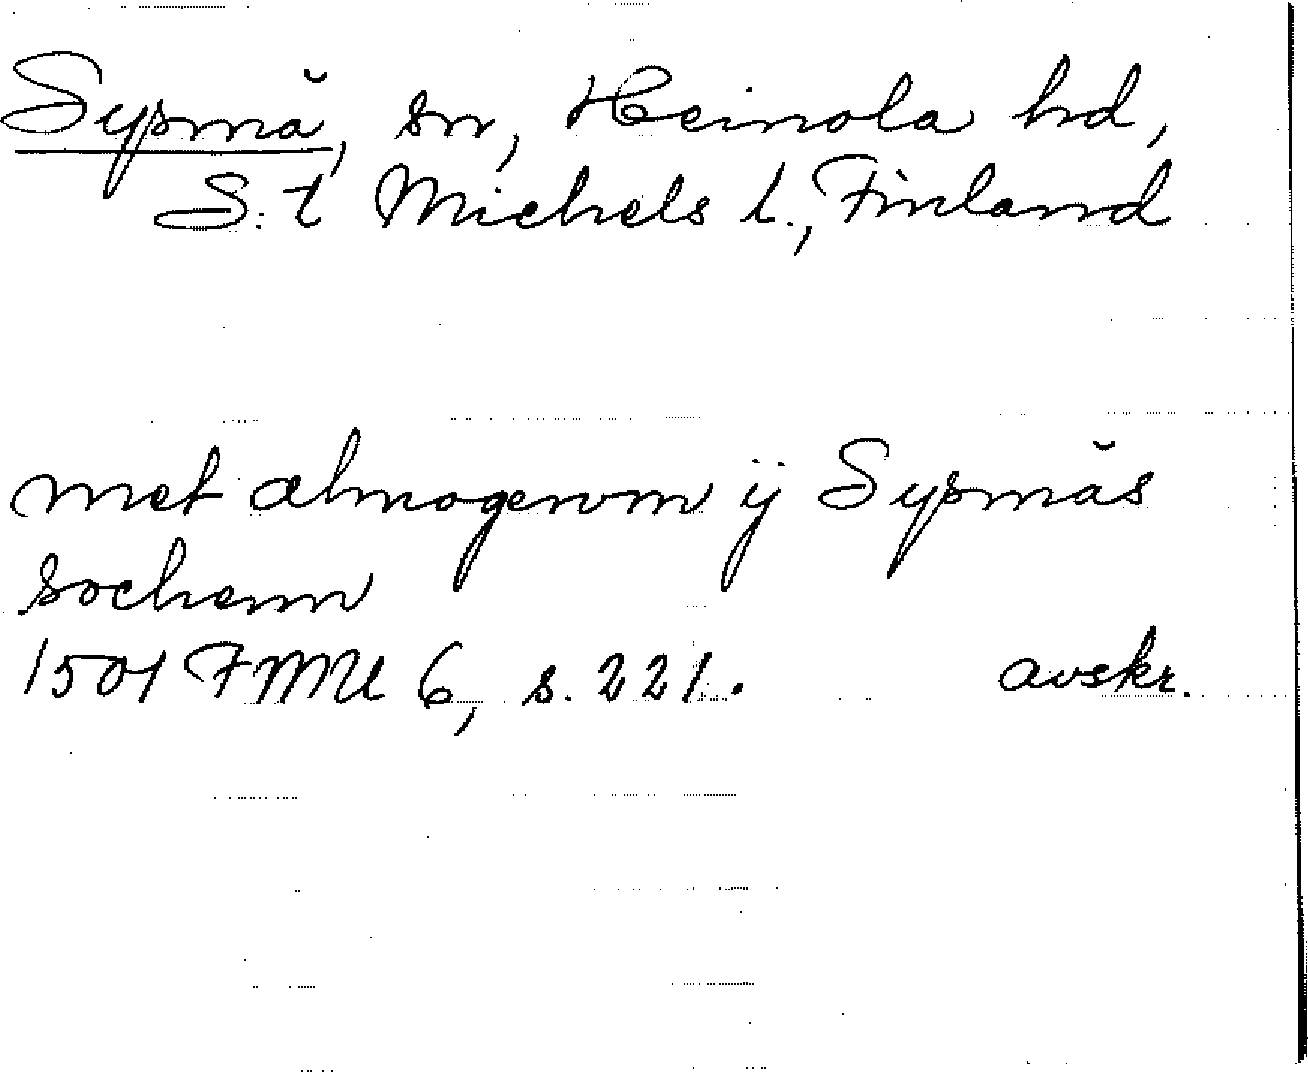 Sysmä, sn, Heinola hd,
S:t Michels l., Finland
met almogenom ij Sysmäs
sochenn
1501 FMU 6, s. 221. avskr.